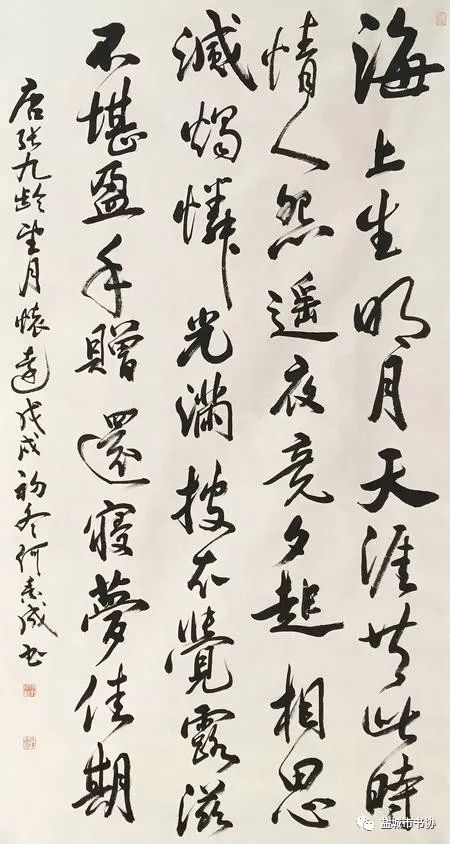 海上生明月天涯共此時
情人怨遥夜竟夕起相思
滅燭憐光滿披衣覺露滋
不堪盈手贈還寢夢佳期
唐张九齡望月懷遠戊戌初冬何成书
盐城市书协